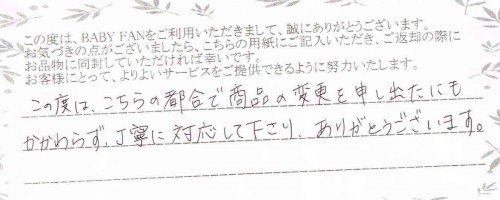 この度は、BABY FANをご利用いただきまして、誠にありがとうございます。
お気づきの点がございましたら、こちらの用紙にご記入いただき、ご返却の際に
お品物に同封していただければ幸いです。
お客様にとって、よりよいサービスをご提供できるように努力いたします。
この度は、こちらの都合で商品の変更を申し出たにも
かかわらず、丁寧に対応して下さり、ありがとうございます。